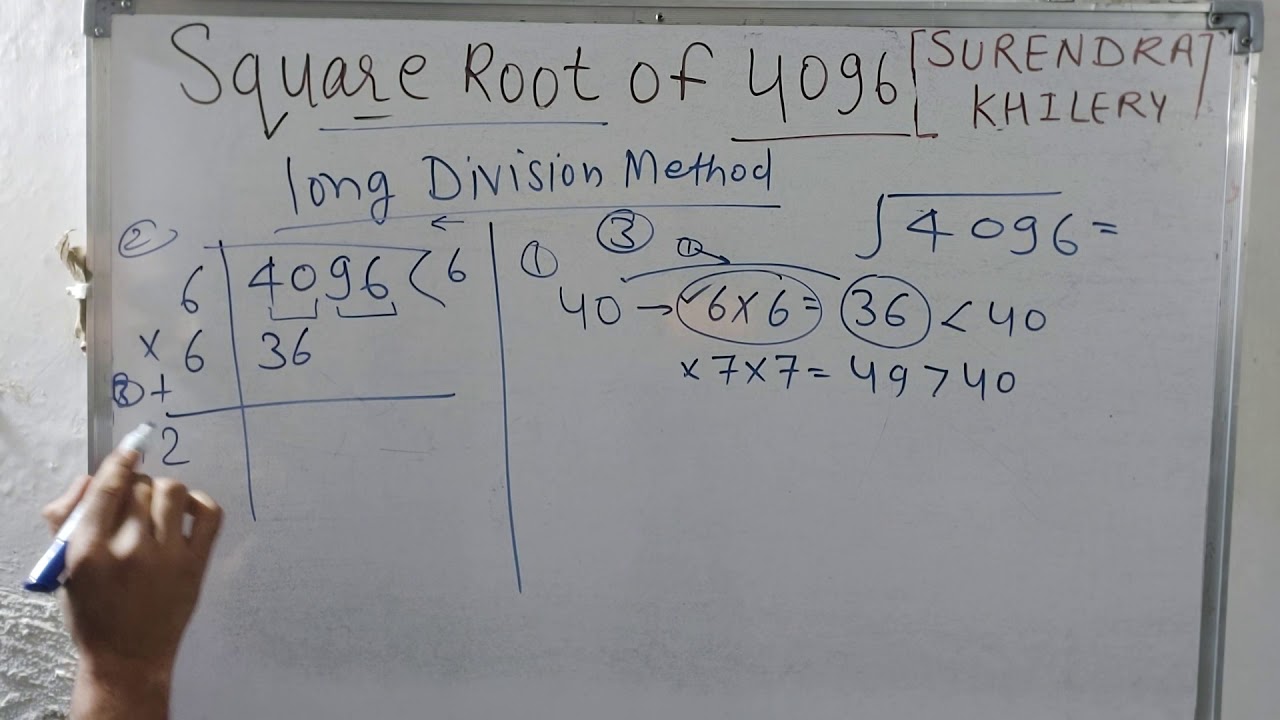 Square Root of 4096 [SURENDRA
KHILERY]
long Division Method
√4096 =
② ←
6 4096 ( 6
× 6 36
③ +
12
③
① ①
40 → ✓6×6 = 36 < 40
× 7×7 = 49 > 40